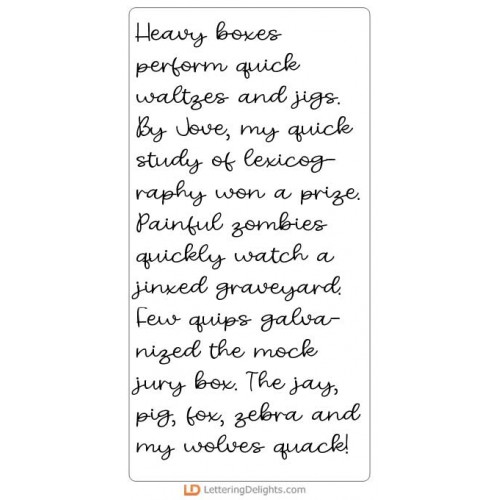 Heavy boxes
perform quick
waltzes and jigs.
By Jove, my quick
study of lexicog-
raphy won a prize.
Painful zombies
quickly watch a
jinxed graveyard.
Few quips galva-
nized the mock
jury box. The jay,
pig, fox, zebra and
my wolves quack!
LD LetteringDelights.com